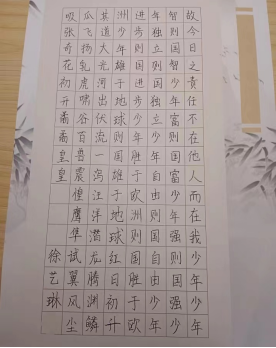 故今日之责任不在他人而在我少年少年
智则国智少年富则国富少年强则国强少
年独立则国独立少年自由则国自由少年
进步则国进步少年胜于欧洲则国胜于欧
洲少年雄于地球则国雄于地球红日初升
其道大光河出伏流一泻汪洋潜龙腾渊鳞
爪飞扬乳虎啸谷百兽震惶鹰隼試翼风尘
吸张奇花初开矞矞皇皇
徐艺琳